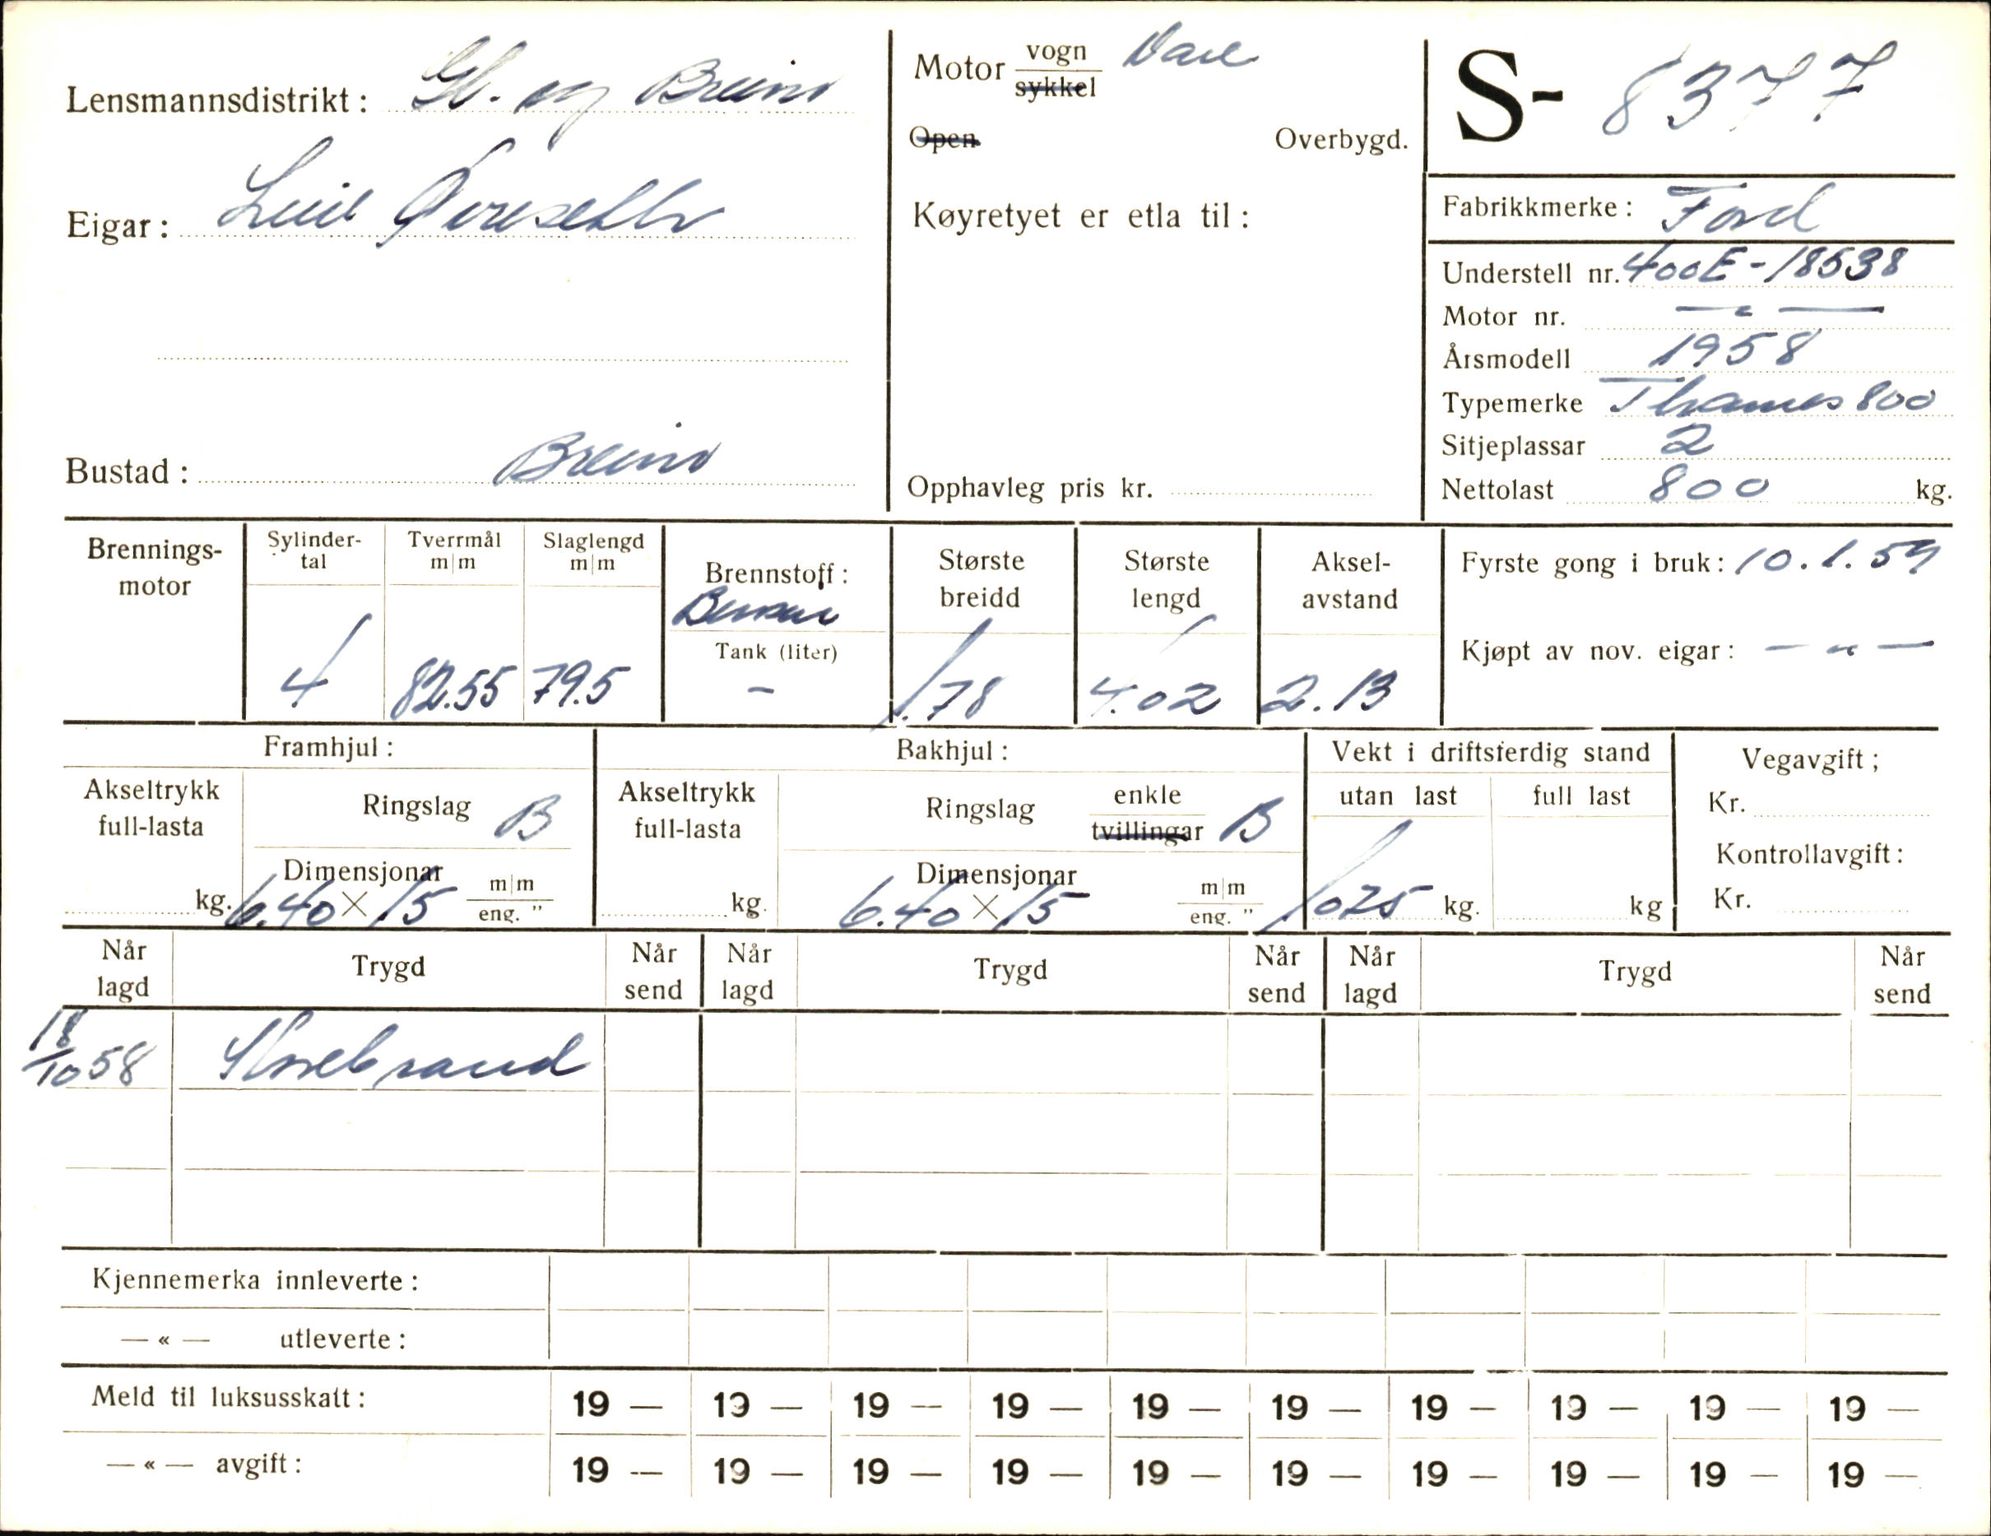 Lensmannsdistrikt: Gl. og Breim
Eigar:
Bustad: Breim
Motor vogn Vare
sykkel
Open Overbygd.
Køyretyet er etla til:
Opphavleg pris kr.
S- 8377
Fabrikkmerke: Ford
Understell nr. 400E-18538
Motor nr. — " —
Årsmodell 1958
Typemerke Thames 800
Sitjeplassar 2
Nettolast 800 kg.
Brennings-
motor
Sylinder-
tal
4
Tverrmål
m|m
82.55
Slaglengd
m|m
79.5
Brennstoff:
Bensin
Tank (liter)
-
Største
breidd
1.78
Største
lengd
4.02
Aksel-
avstand
2.13
Fyrste gong i bruk: 10.1.59
Kjøpt av nov. eigar: — " —
Framhjul:
Akseltrykk
full-lasta
kg.
Ringslag B
Dimensjonar
6.40 X 15 m|m
eng. "
Bakhjul:
Akseltrykk
full-lasta
kg.
Ringslag enkle
tvillingar B
Dimensjonar
6.40 X 15 m|m
eng. "
Vekt i driftsferdig stand
utan last full last
1075 kg. kg
Vegavgift;
Kr.
Kontrollavgift:
Kr.
Når
lagd Trygd Når
send Når
lagd Trygd Når
send Når
lagd Trygd Når
send
18/10 58 Storebrand
Kjennemerka innleverte:
— « — utleverte:
Meld til luksusskatt: 19 — 19 — 19 — 19 — 19 — 19 — 19 — 19 — 19 — 19 —
— « — avgift: 19 — 19 — 19 — 19 — 19 — 19 — 19 — 19 — 19 — 19 —